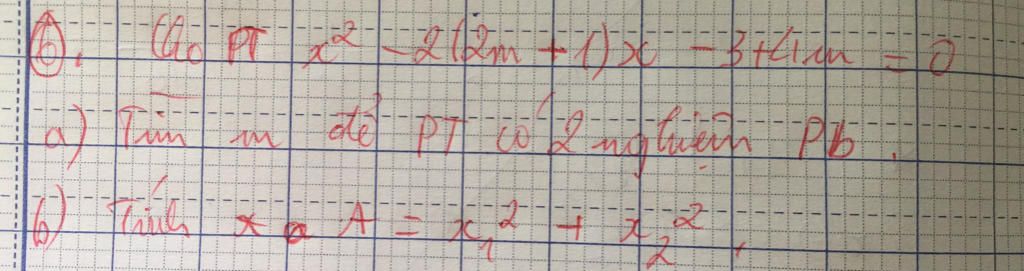 6. Cho PT x² - 2(2m + 1)x - 3 + 4m = 0
a) Tìm m để PT có 2 nghiệm Pb.
b) Tính A = x₁² + x₂².